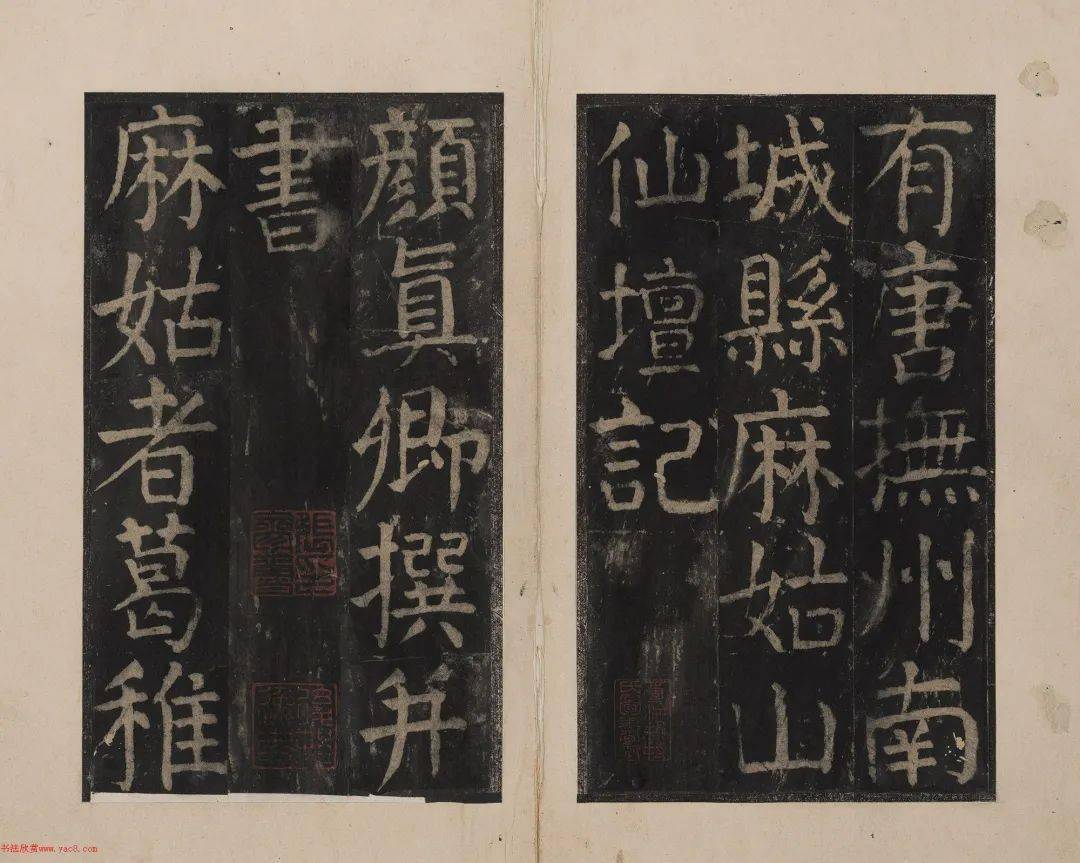 有唐撫州南
城縣麻姑山
仙壇記
顏真卿撰并
書
麻姑者葛稚
书法欣赏www.yac8.com